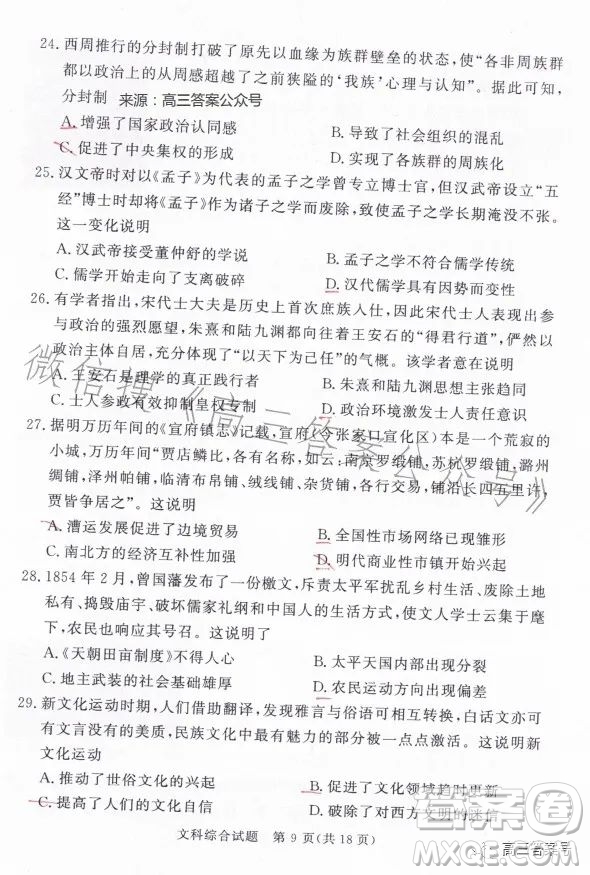 24.西周推行的分封制打破了原先以血缘为族群壁垒的状态，使“各非周族群
都以政治上的从周感超越了之前狭隘的‘我族’心理与认知”。据此可知，
分封制 来源：高三答案公众号
A.增强了国家政治认同感 B.导致了社会组织的混乱
C.促进了中央集权的形成 D.实现了各族群的周族化
25.汉文帝时对以《孟子》为代表的孟子之学曾专立博士官，但汉武帝设立“五
经”博士时却将《孟子》作为诸子之学而废除，致使孟子之学长期淹没不张。
这一变化说明
A.汉武帝接受董仲舒的学说 B.孟子之学不符合儒学传统
C.儒学开始走上了支离破碎 D.汉代儒学具有因势而变性
26.有学者指出，宋代士大夫是历史上首次庶族入仕，因此宋代士人表现出参
与政治的强烈愿望，朱熹和陆九渊都期待王安石的“得君行道”，俨然以
政治主体自居，充分体现了“以天下为己任”的气概。该学者意在说明
A.王安石是理学的真正践行者 B.朱熹和陆九渊思想主张趋同
C.士人参政有效抑制皇权专制 D.政治环境激发士人责任意识
27.据明万历年间的《宣府镇志》记载，宣府（今张家口宣化区）是一个荒寂的
小城，万历年间“贾店鳞比，各有名称，如云：南京罗缎铺、苏杭罗缎铺、潞州
绸铺、泽州帕铺、临清布帛铺、绒线铺、杂货铺，各行交易，铺沿长四五里许，
贾皆争居之”。这说明
A.漕运发展促进了边境贸易 B.全国性市场网络已现雏形
C.南北方的经济互补性加强 D.明代商业性市镇开始兴起
28.1854年2月，曾国藩发布了一份檄文，斥责太平军扰乱乡村生活、废除土地
私有、捣毁庙宇、破坏儒家礼纲和中国人的生活方式，使文人学士云集于麾
下，农民也响应其号召。这说明了
A.《天朝田亩制度》不得人心 B.太平天国内部出现分裂
C.地主武装的社会基础雄厚 D.农民运动方向出现偏差
29.新文化运动时期，人们借助翻译，发现雅言与俗语可相互转换，白话文亦可
有文言没有的美质，民族文化中最有魅力的部分被一点点激活。这说明新
文化运动
A.推动了世俗文化的兴起 B.促进了文化领域趋时更新
C.提高了人们的文化自信 D.破除了对西方文明的迷信
文科综合试题 第9页(共18页)
微信搜《高三答案公众号》
答案圈
高三答案号